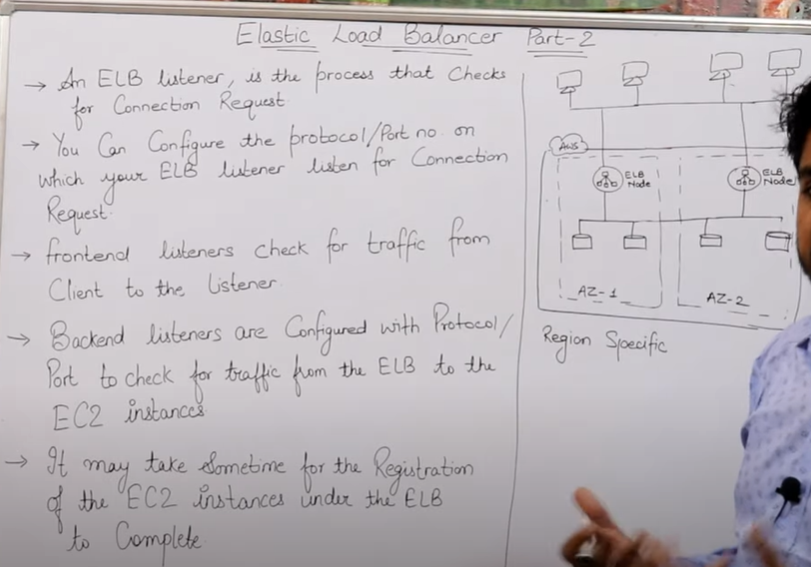 Elastic Load Balancer Part-2
→ An ELB listener, is the process that Checks
for Connection Request
→ You Can Configure the protocol/Port no. on
which your ELB listener listen for Connection
Request.
→ frontend listeners check for traffic from
Client to the Listener
→ Backend listeners are Configured with Protocol/
Port to check for traffic from the ELB to the
EC2 instances
→ It may take Sometime for the Registration
of the EC2 instances under the ELB
to Complete
AWS
ELB
Node
ELB
Node
AZ-1
AZ-2
Region Specific